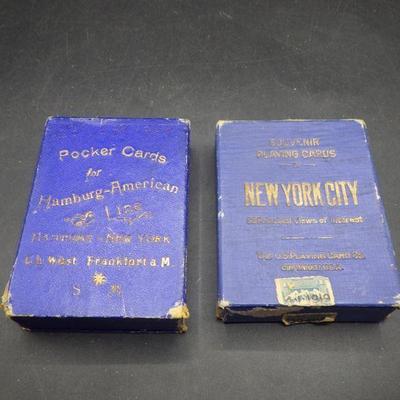 Pocker Cards
for
Hamburg-American
Line
Hamburg - New York
Lib. West Frankfurt a M.
S
SOUVENIR
PLAYING CARDS
NEW YORK CITY
Views of Interest
THE U.S. PLAYING CARD CO.
CINCINNATI, U.S.A.